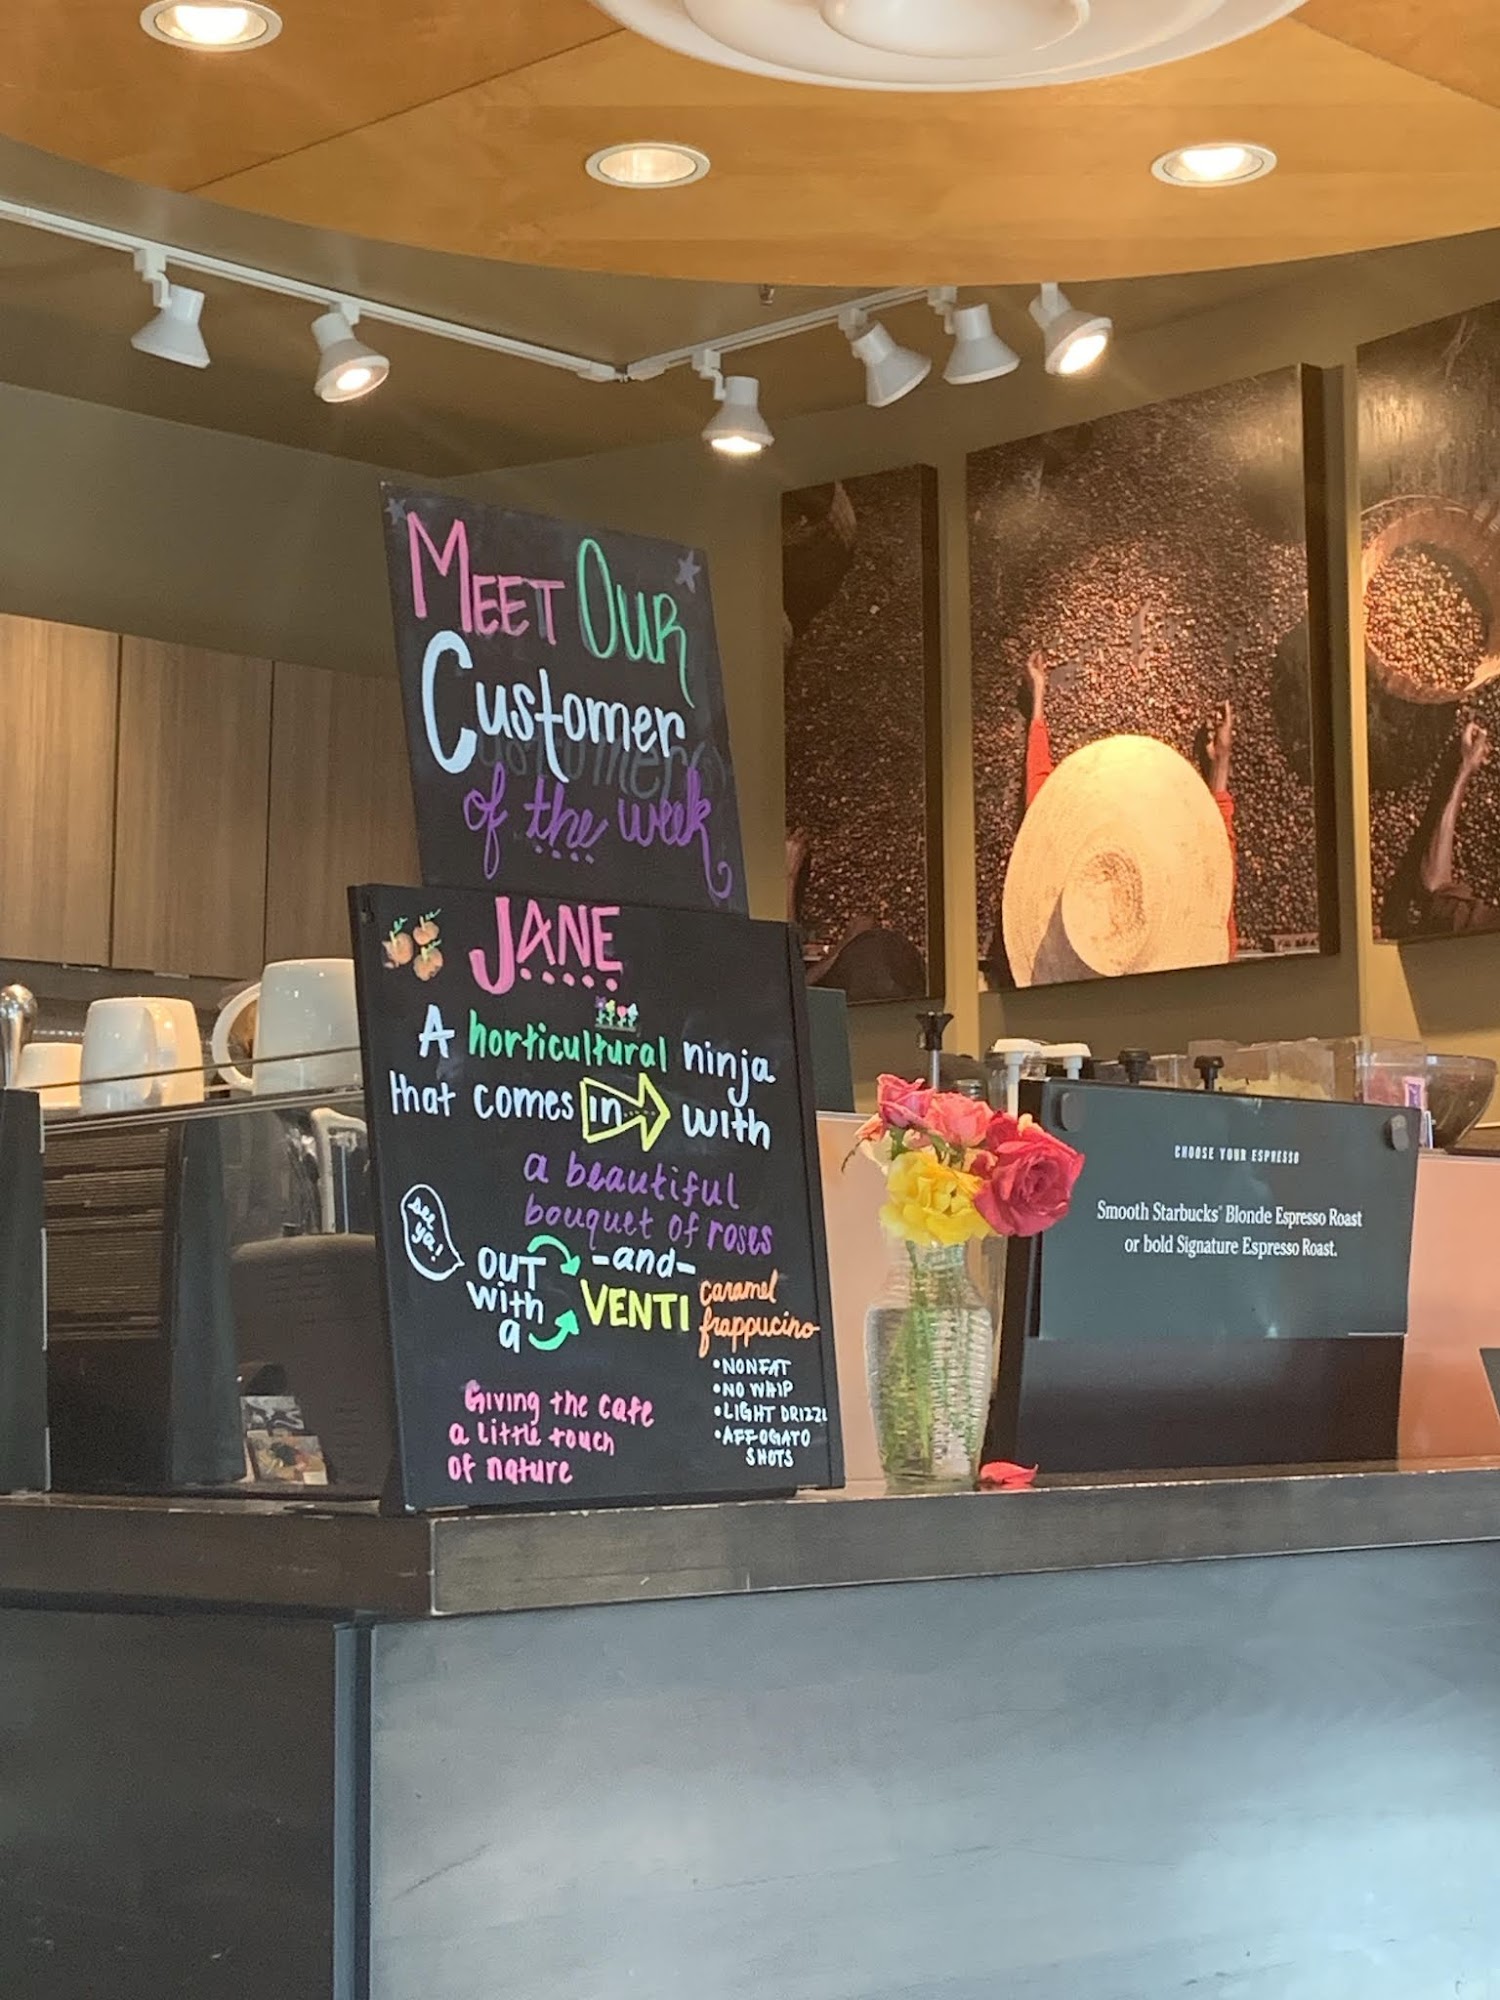 MEET OUR
Customer
of the week
JANE
A horticultural ninja
that comes in with
a beautiful
bouquet of roses
see
ya!
OUT
with
a
-and-
VENTI
caramel
frappucino
• NONFAT
• NO WHIP
• LIGHT DRIZZL
• AFFOGATO
SHOTS
Giving the cafe
a little touch
of nature
CHOOSE YOUR ESPRESSO
Smooth Starbucks® Blonde Espresso Roast
or bold Signature Espresso Roast.